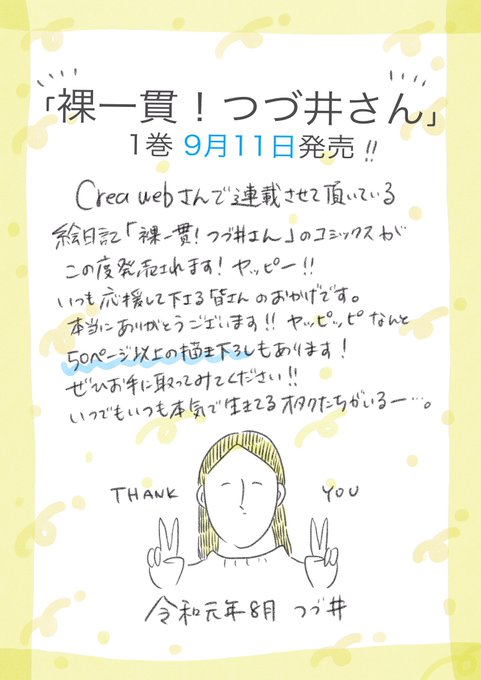 「裸一貫！つづ井さん」
1巻 9月11日発売!!
Crea webさんで連載させて頂いている
絵日記「裸一貫！つづ井さん」のコミックスが
この度発売されます！ヤッピー!!
いつも応援して下さる皆さんのおかげです。
本当にありがとうございます!! ヤッピッピ なんと
50ページ以上の描き下ろしもあります！
ぜひお手に取ってみてください!!
いつでもいつも本気で生きてるオタクたちがいるー…。
THANK YOU
令和元年8月 つづ井